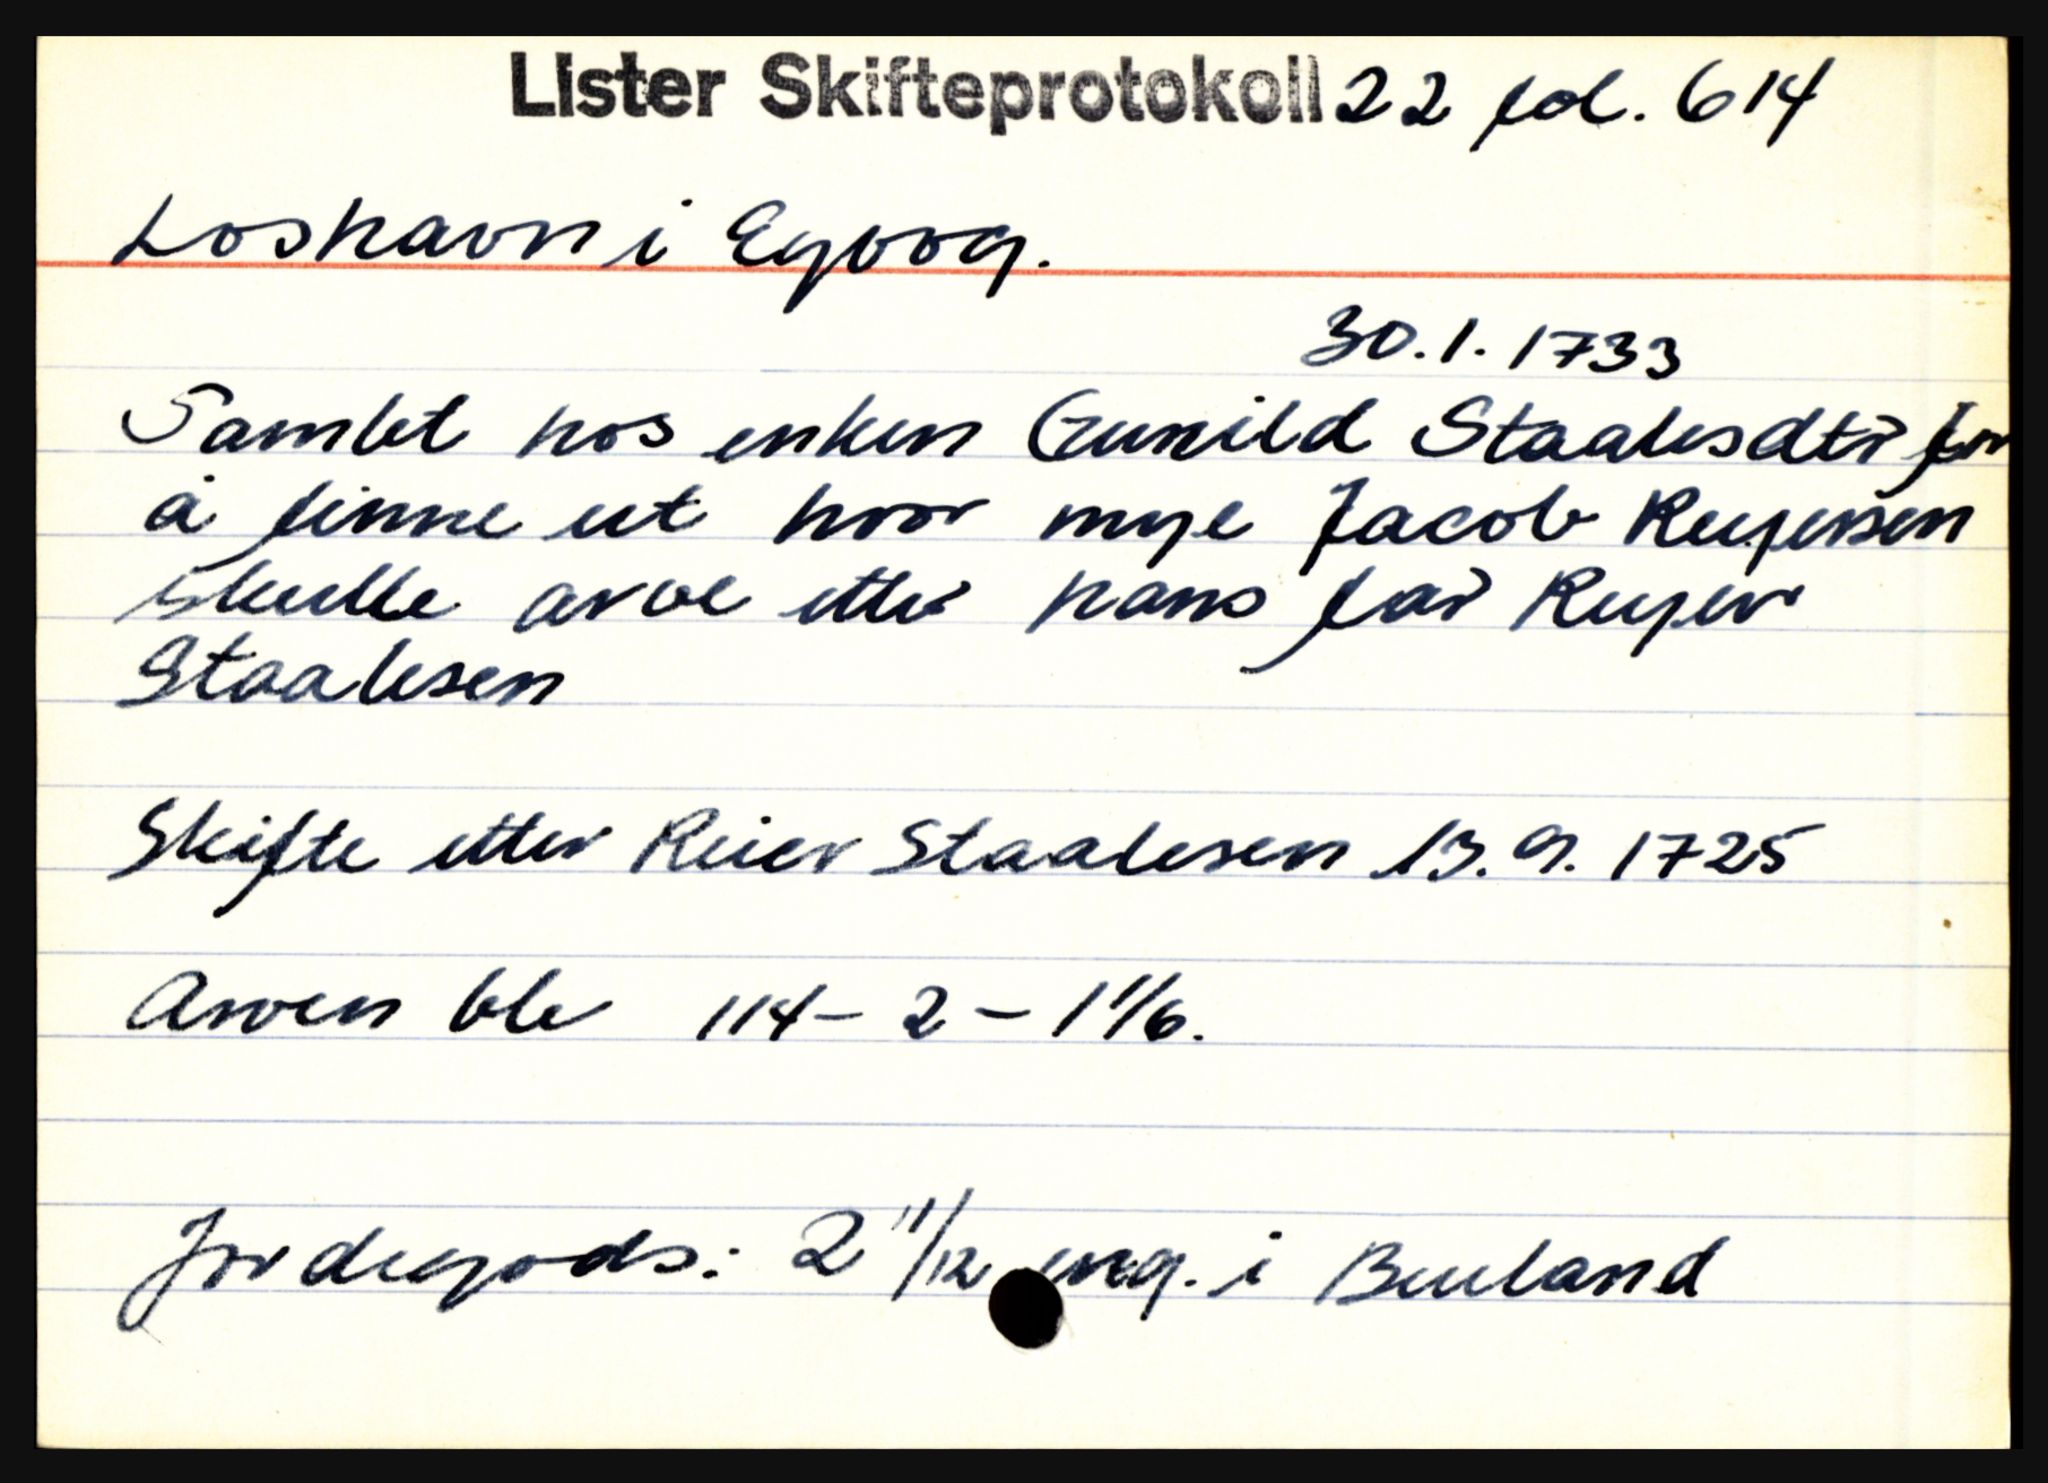 Lister Skifteprotokoll 22 fol. 614
Loshavn i Egvog.
30.1.1733
Samlet hos enken Gunild Staalesdtr for
å finne ut hvor mye Jacob Reyersen
skulle arve etter hans far Reyer
Staalesen
Skifte etter Reier Staalesen 13.9.1725
Arven ble 114 - 2 - 1 1/6.
Jordegods: 2 11/12 eng. i Buuland